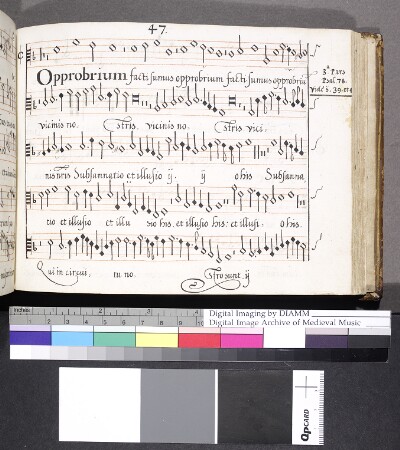 47.
Opprobrium facti sumus opprobrium facti sumus opprobriū
3ª Pars
Psal. 78.
vicinis no. stris. vicinis no. stris vici.
nis nris Subsannatio et illusio ij. ij o his Subsanna
tio et illusio et illu sio his. et illusio his: et illusi. o his.
Qui in circui. tu no. stro sunt. ij
inches 1 2 3
1 2 3 4 5 6 7 8 9 10
Digital Imaging by DIAMM
Digital Image Archive of Medieval Music
QPCARD